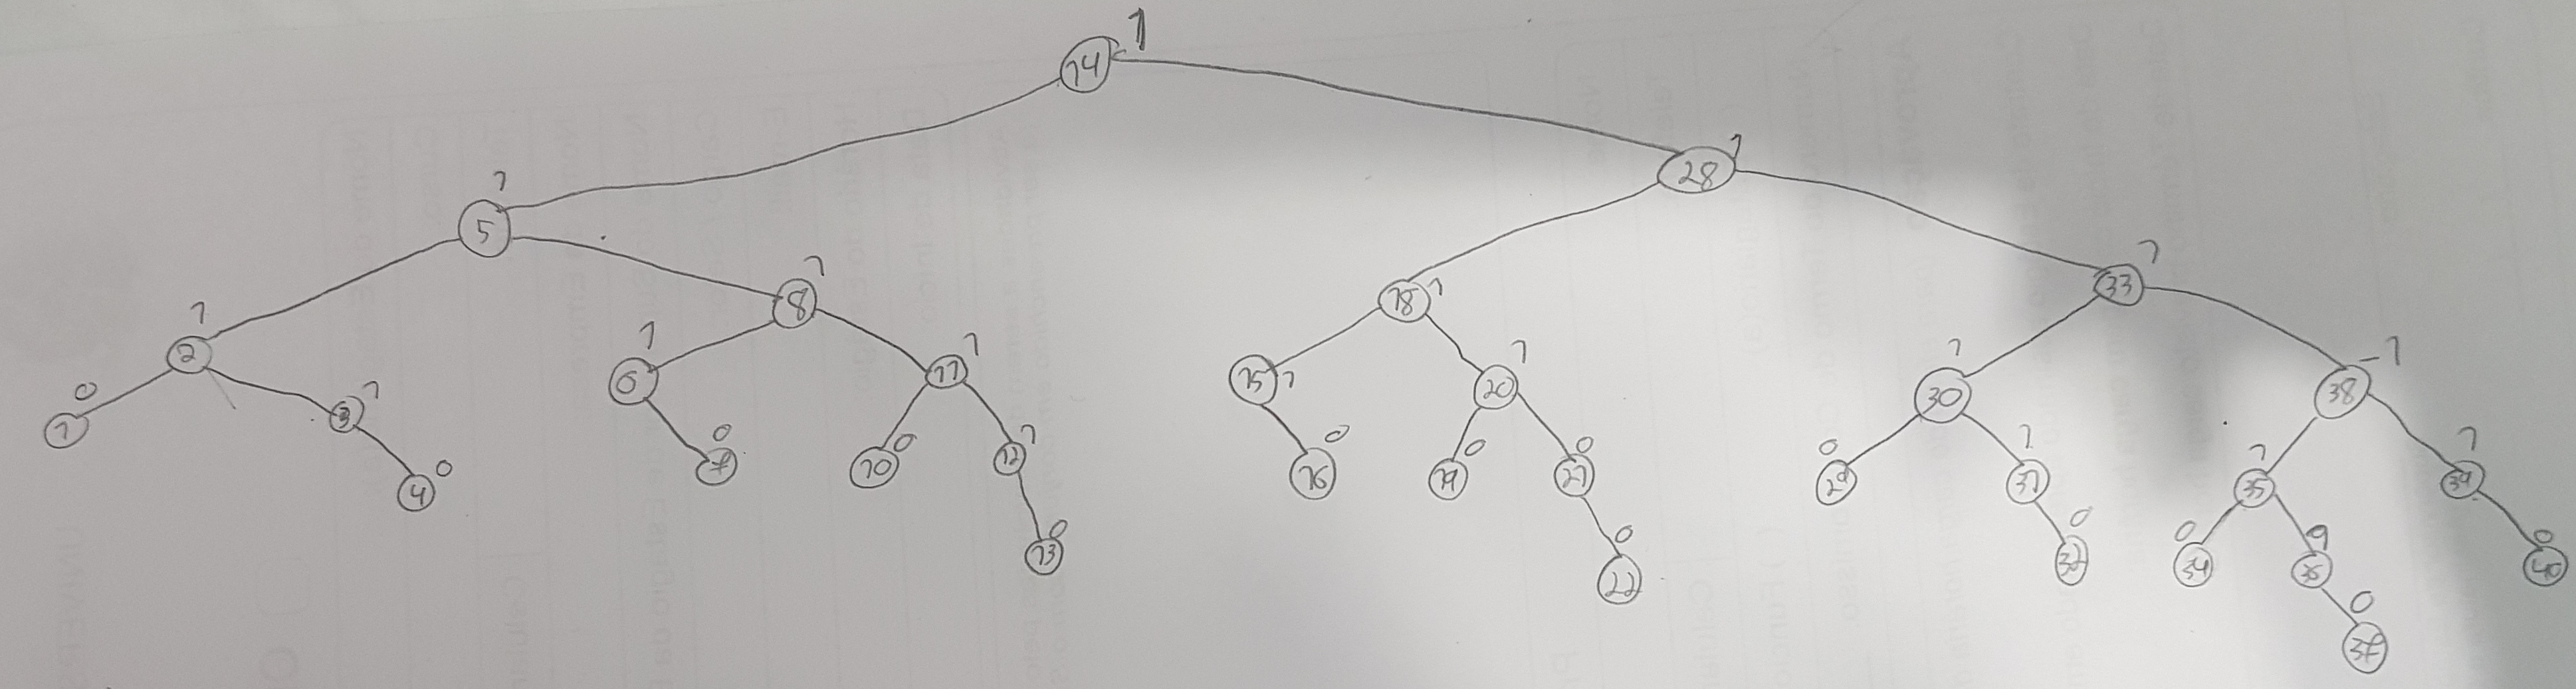 14 1
5 1
28 1
2 1
8 1
18 1
33 1
1 0
3 1
6 1
11 1
15 1
20 1
30 1
38 -1
4 0
7 0
10 0
12 1
16 0
19 0
21 0
29 0
31 1
35 1
39 1
13 0
22 0
32 0
34 0
36
40 0
37 0